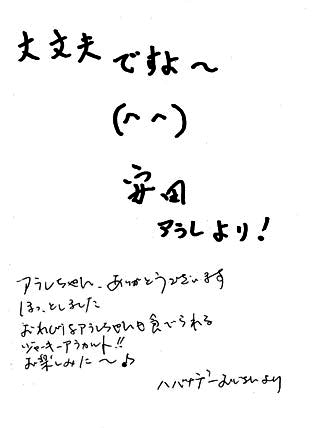 大丈夫ですよ〜
(^^)
安田
アラレより!
アラレちゃん、ありがとうございます
ほっとしました
おれいはアラレちゃんも食べられる
ジャーキーアラカルト!!
お楽しみに〜♪
ハバナ より